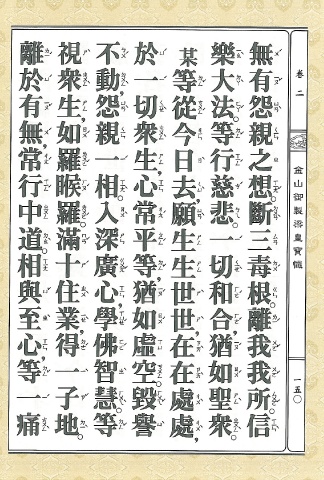 卷二
金山御製梁皇寶懺
一五〇
無有怨親之想。斷三毒根。離我我所。信
樂大法。等行慈悲。一切和合。猶如聖衆。
某等從今日去。願生生世世。在在處處。
於一切衆生。心常平等。猶如虛空。毀譽
不動。怨親一相。入深廣心。學佛智慧。等
視衆生。如羅睺羅。滿十住業。得一子地。
離於有無。常行中道。相與至心。等一痛